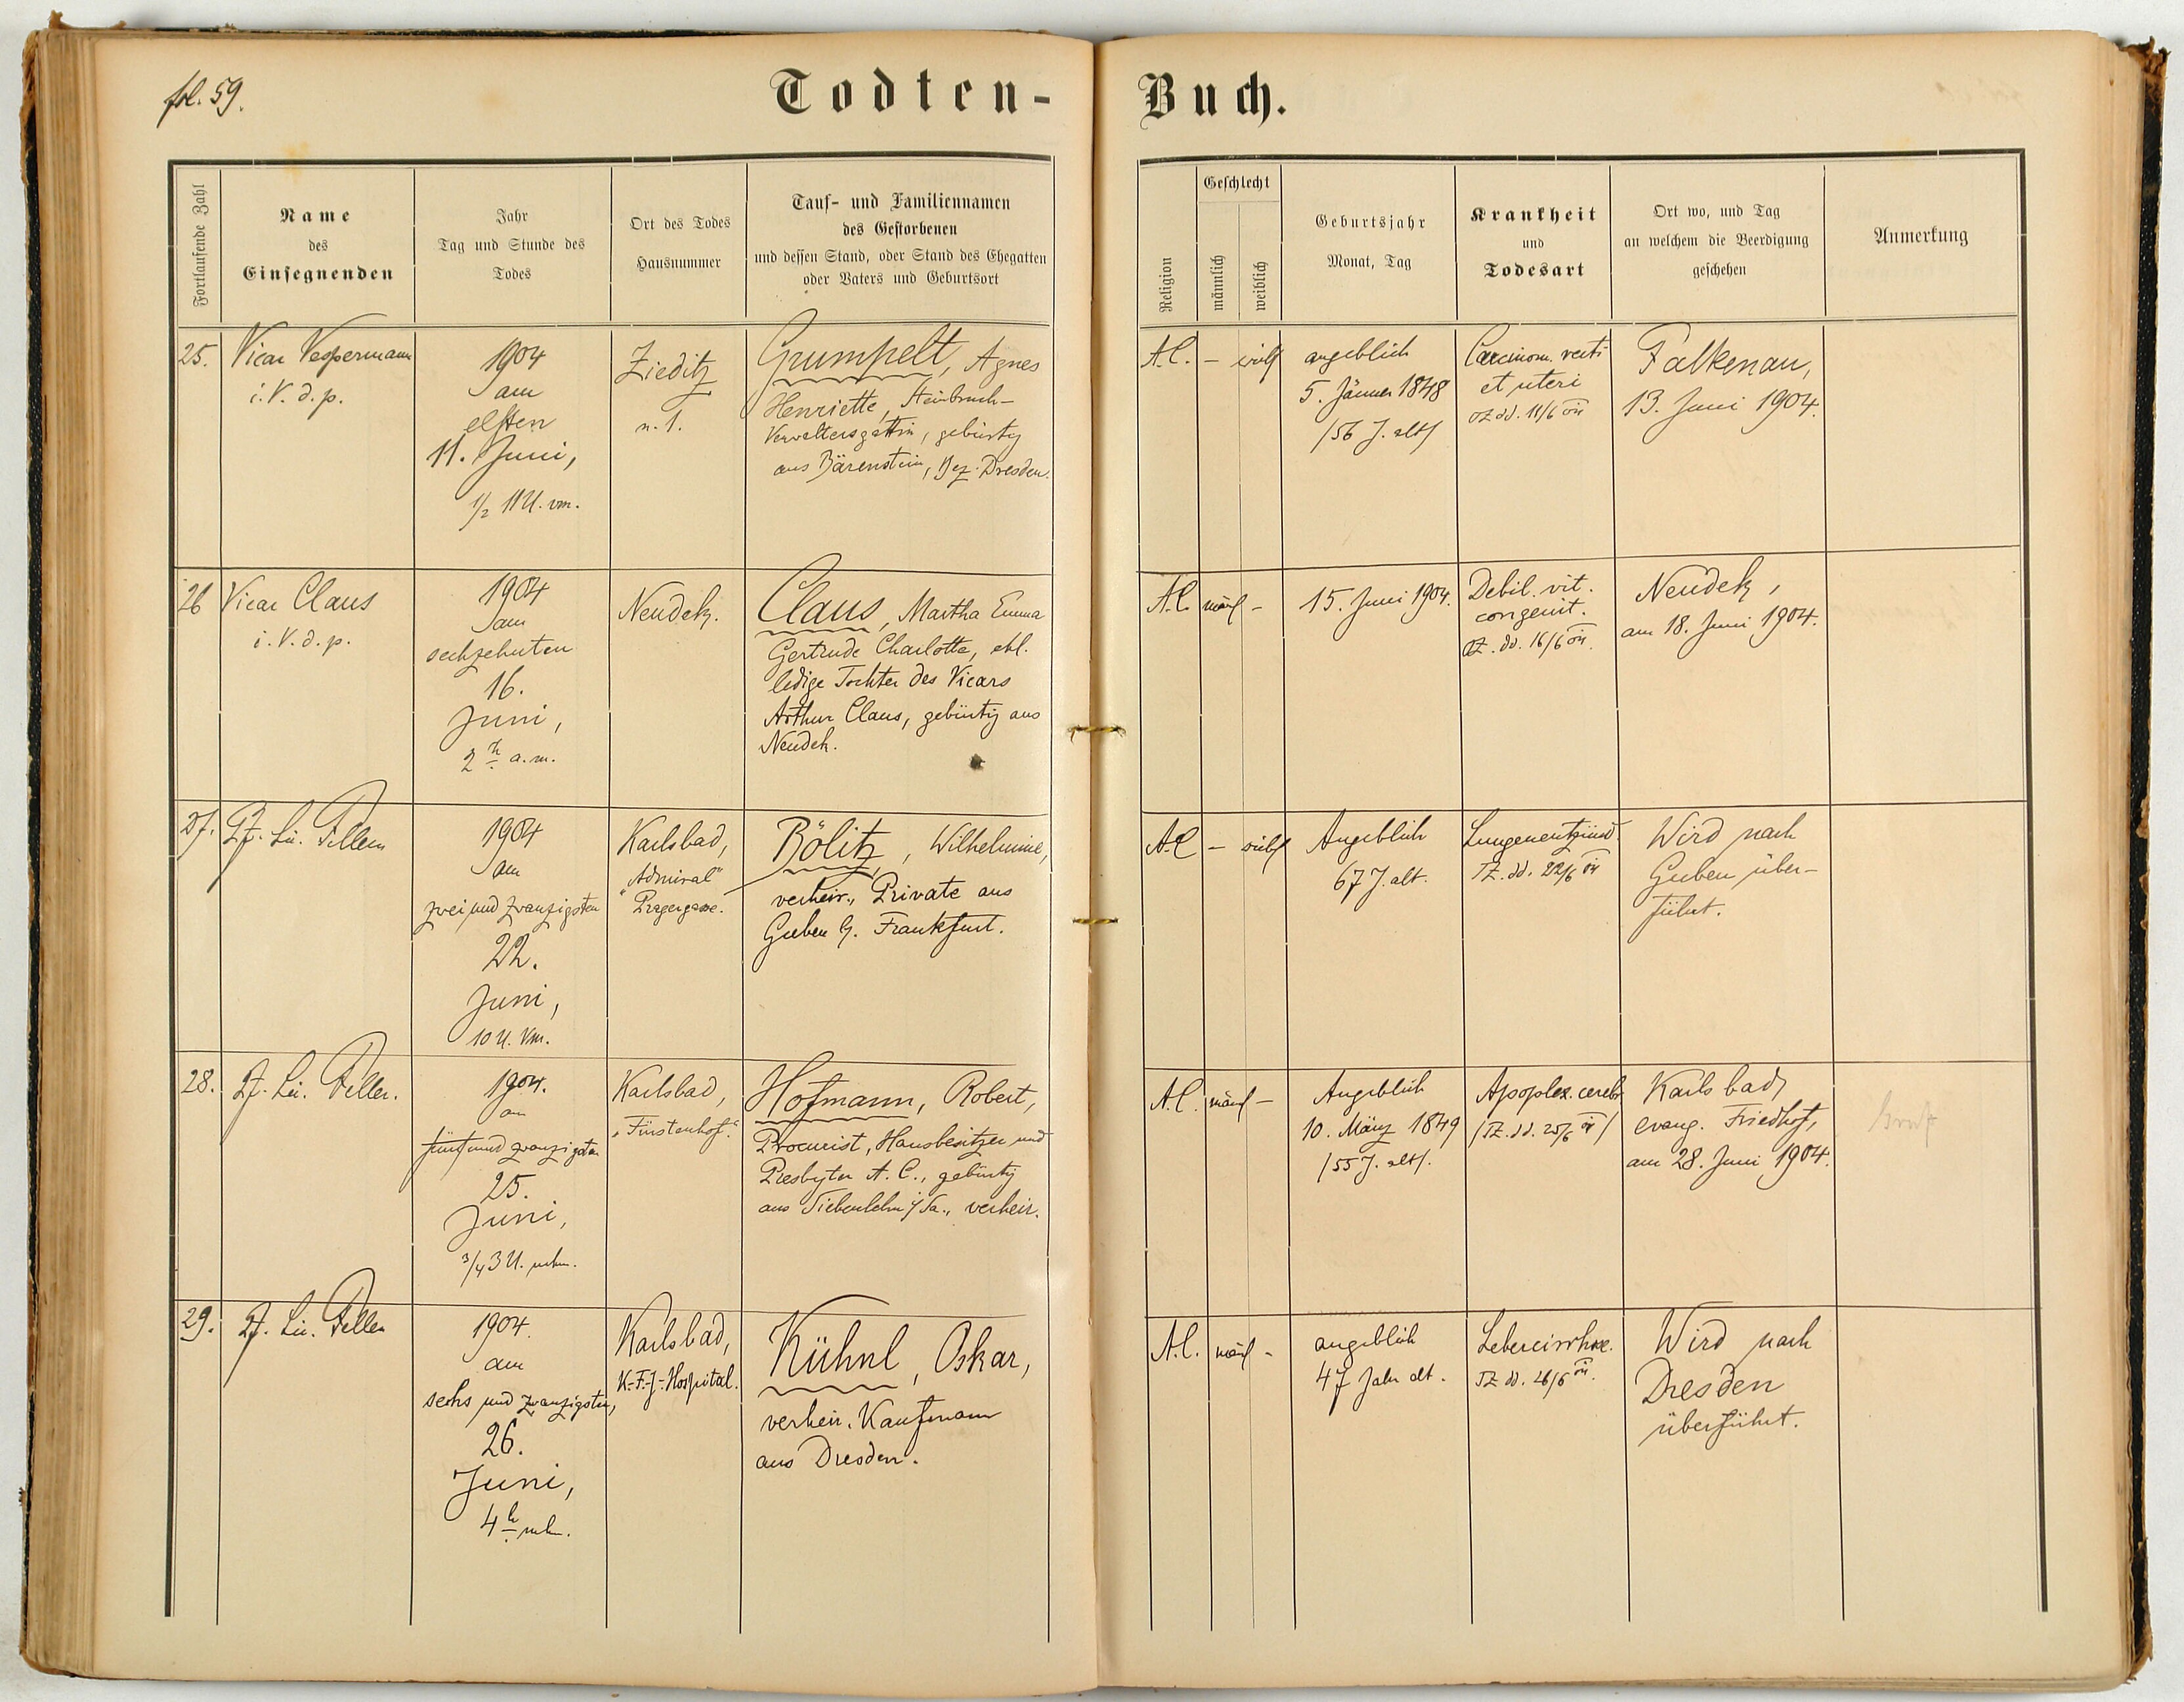 fol. 59.
Todten-
Buch.
Fortlaufende Zahl
Name
des
Einsegnenden
Jahr
Tag und Stunde des
Todes
Ort des Todes
Hausnummer
Tauf- und Familiennamen
des Gestorbenen
und dessen Stand, oder Stand des Ehegatten
oder Vaters und Geburtsort
Religion
Geschlecht
männlich
weiblich
Geburtsjahr
Monat, Tag
Krankheit
und
Todesart
Ort wo, und Tag
an welchem die Beerdigung
geschehen
Anmerkung
25.
Vicar Vespermann
i. V. d. p.
1904
am
elften
11. Juni,
1/2 11 U. vm.
Zieditz
n. 1.
Grumpelt, Agnes
Henriette, Steinbruch-
Verwaltersgattin, gebürtig
aus Bärenstein, Bez. Dresden.
A.C.
-
weibl
angeblich
5. Jänner 1848
/56 J. alt/
Carcinom. recti
et uteri
dd. 11/6
Falkenau,
13. Juni 1904.
26
Vicar Claus
i. V. d. p.
1904
am
sechzehnten
16.
Juni,
2 h a.m.
Neudek.
Claus, Martha Emma
Gertrude Charlotte, ehl.
ledige Tochter des Vicars
Arthur Claus, gebürtig aus
Neudek.
A.C.
männl -
15. Juni 1904.
Debil. vit.
congenit.
dd. 16/6
Neudek,
am 18. Juni 1904.
27.
Pf. Lic. Fellen
1904
am
zwei und zwanzigsten
22.
Juni,
10 U. Vm.
Karlsbad,
"Admiral"
Pragergasse.
Bölitz, Wilhelmine,
verheir., Private aus
Guben b. Frankfurt.
A.C
-
weibl
Angeblich
67 J. alt.
Lungenentzünd.
TZ. dd. 22/6
Wird nach
Guben über-
führt.
28.
Pf. Lic. Fellen.
1904.
am
fünf und zwanzigsten
25.
Juni,
3/4 3 U. nchm.
Karlsbad,
"Fürstenhof."
Hofmann, Robert,
Procurist, Hausbesitzer und
Presbyter A. C., gebürtig
aus Siebenlehn i/Sa., verheir.
A.C.
männl -
Angeblich
10. März 1849
/55 J. alt/.
Apoplex. cerebr
/TZ. dd. 25/6 /
Karlsbad,
evang. Friedhof,
am 28. Juni 1904.
29.
Pf. Lic. Fellen
1904.
am
sechs und zwanzigsten,
26.
Juni,
4 h nchm.
Karlsbad,
K.-F.-J.-Hospital.
Kühnl, Oskar,
verheir. Kaufmann
aus Dresden.
A.C.
männl -
angeblich
47 Jahr alt.
Lebercirrhose.
TZ dd. 26/6
Wird nach
Dresden
überführt.